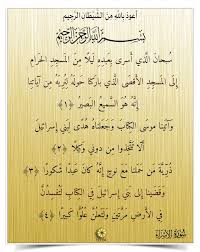 أعوذ بالله من الشيطان الرجيم
بسم الله الرحمن الرحيم
سبحان الذي أسرى بعبده ليلا من المسجد الحرام
إلى المسجد الأقصى الذي باركنا حوله لنريه من آياتنا
إنه هو السميع البصير ﴿١﴾
وآتينا موسى الكتاب وجعلناه هدى لبني إسرائيل
ألا تتخذوا من دوني وكيلا ﴿٢﴾
ذرية من حملنا مع نوح إنه كان عبدا شكورا ﴿٣﴾
وقضينا إلى بني إسرائيل في الكتاب لتفسدن
في الأرض مرتين ولتعلن علوا كبيرا ﴿٤﴾
سورة الإسراء